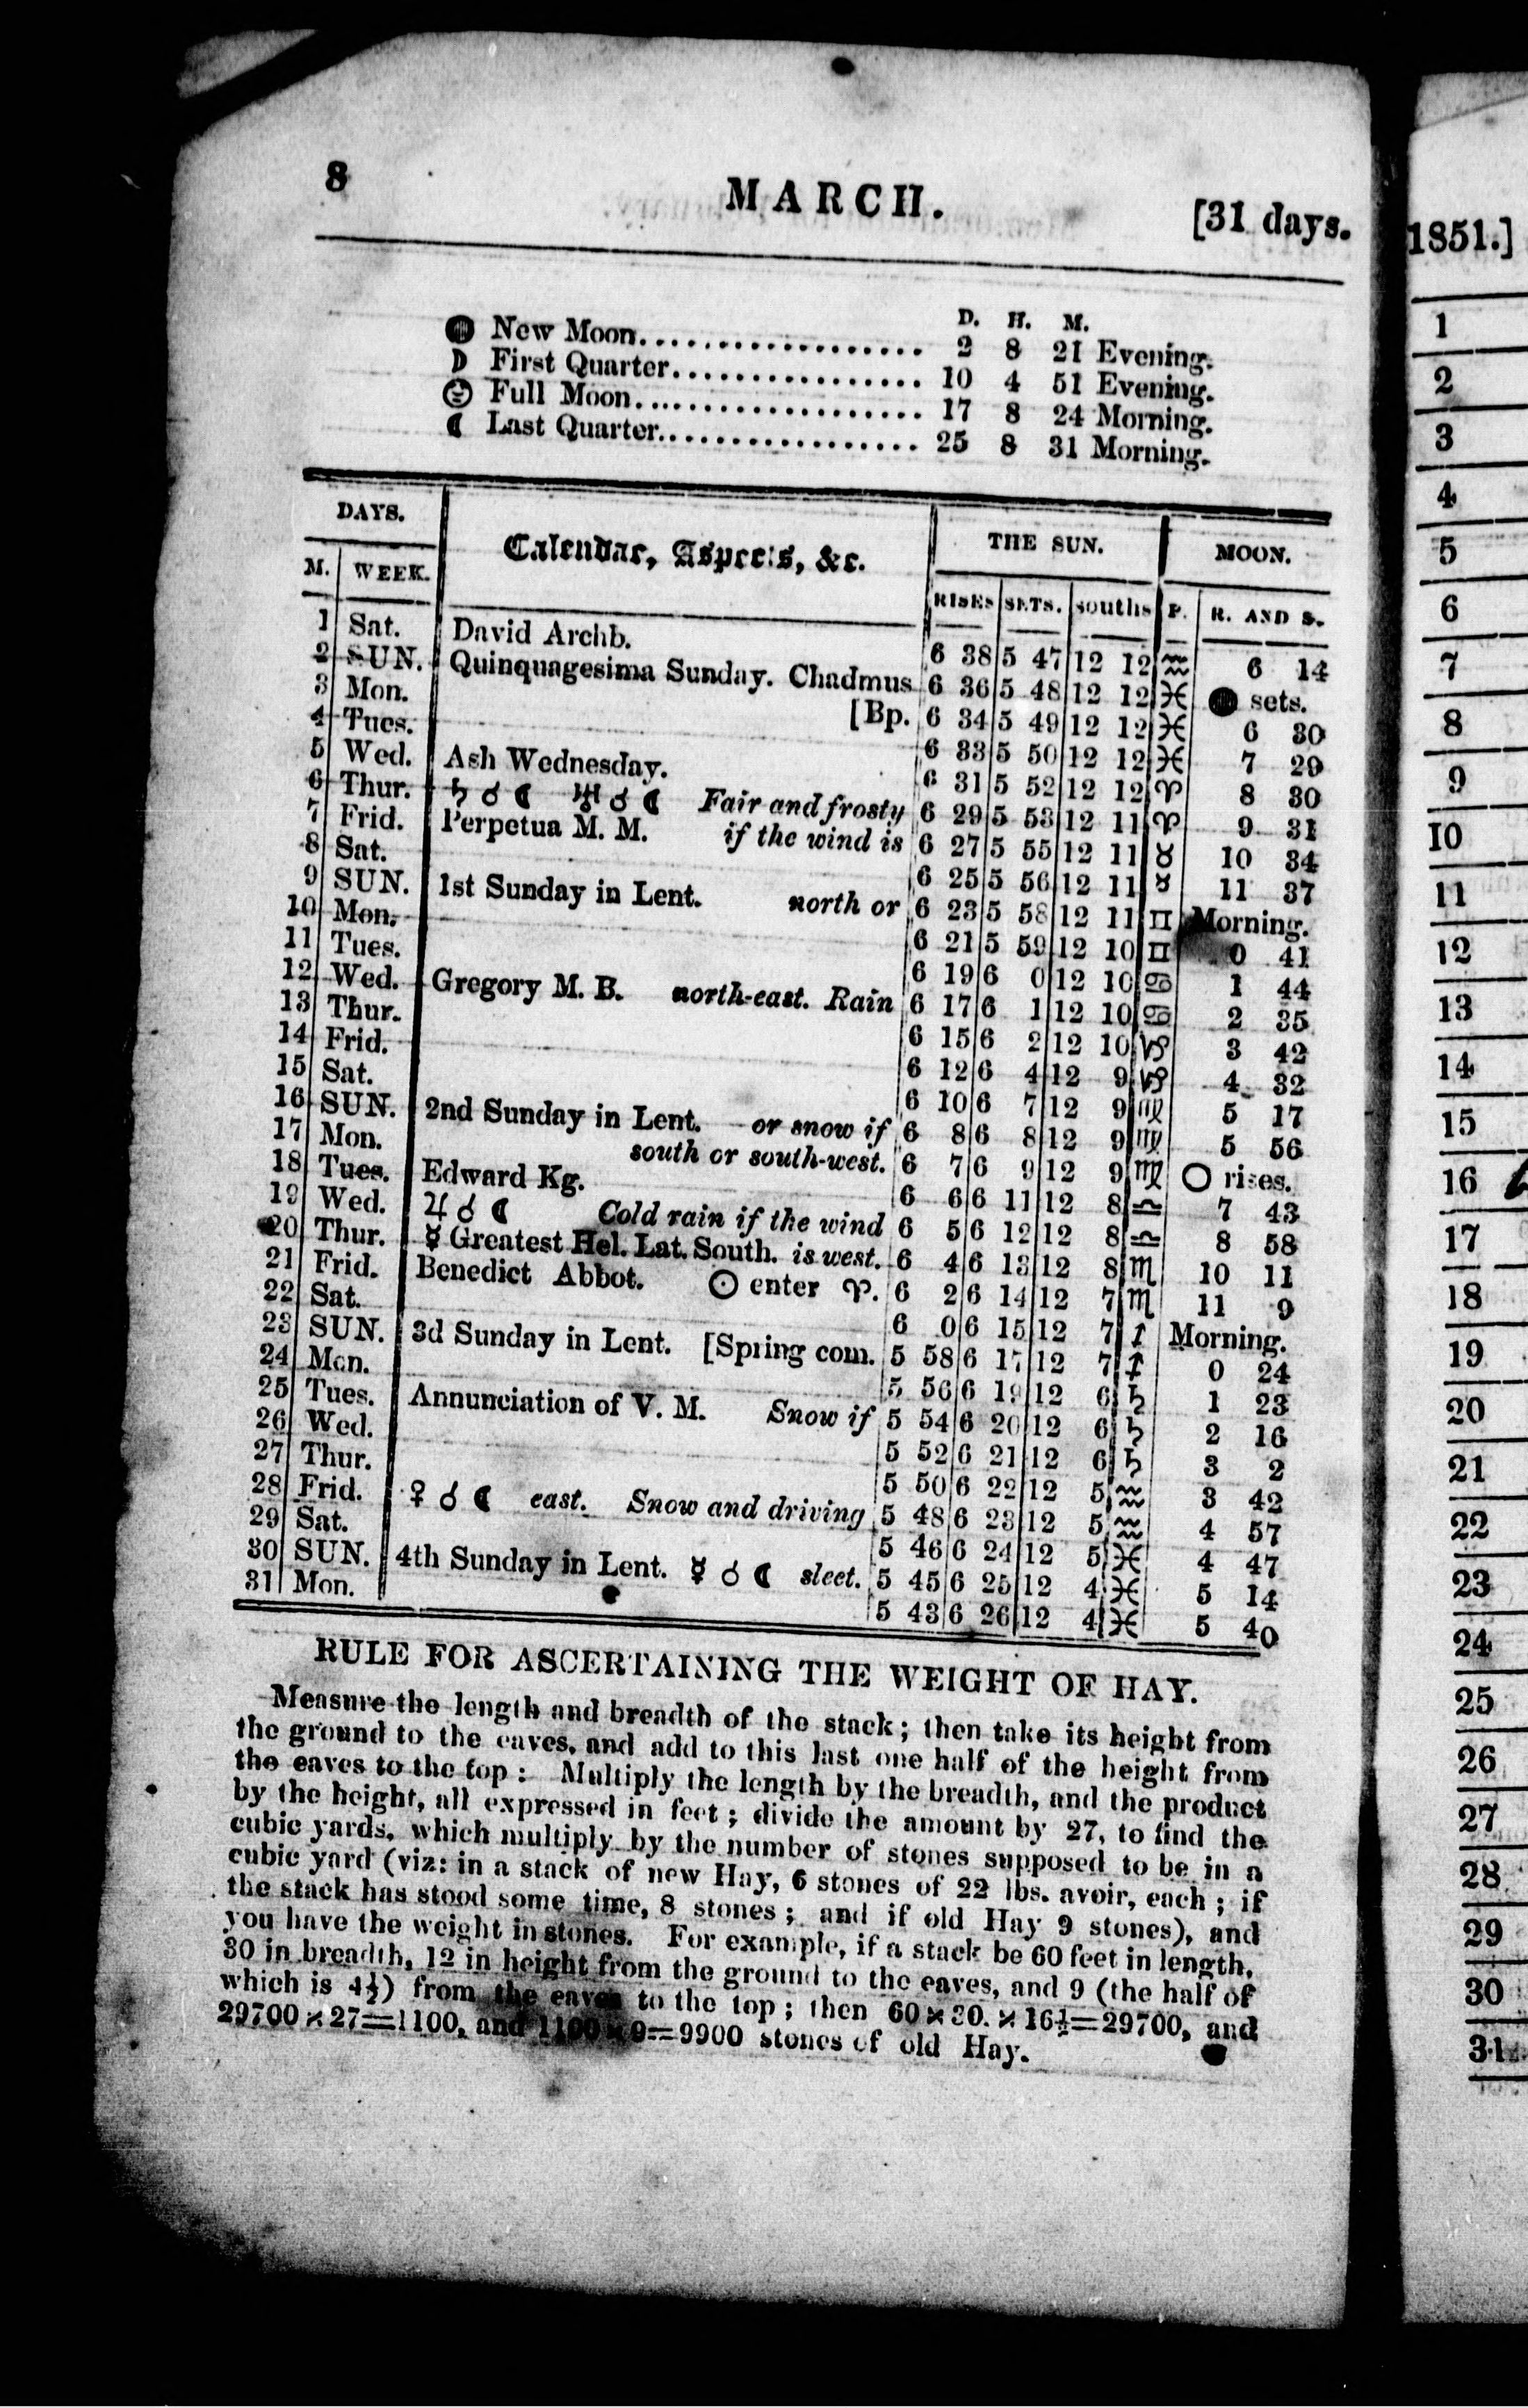 8
MARCH.
[31 days.
D. H. M.
New Moon................... 2 8 21 Evening.
First Quarter................ 10 4 51 Evening.
Full Moon................... 17 8 24 Morning.
☾ Last Quarter................. 25 8 31 Morning.
DAYS. Calendar, Aspects, &c. THE SUN. MOON.
M. WEEK. RISES SETS. souths P. R. AND S.
1 Sat. David Archb. 6 38 5 47 12 12 ♒ 6 14
2 SUN. Quinquagesima Sunday. Chadmus 6 36 5 48 12 12 ♓ ● sets.
3 Mon. [Bp. 6 34 5 49 12 12 ♓ 6 30
4 Tues. 6 33 5 50 12 12 ♓ 7 29
5 Wed. Ash Wednesday. 6 31 5 52 12 12 ♈ 8 30
6 Thur. ♄ ☌ ☾ ♅ ☌ ☾ Fair and frosty 6 29 5 53 12 11 ♈ 9 31
7 Frid. Perpetua M. M. if the wind is 6 27 5 55 12 11 ♉ 10 34
8 Sat. 6 25 5 56 12 11 ♉ 11 37
9 SUN. 1st Sunday in Lent. north or 6 23 5 58 12 11 ♊ Morning.
10 Mon. 6 21 5 59 12 10 ♊ 0 41
11 Tues. 6 19 6 0 12 10 ♋ 1 44
12 Wed. Gregory M. B. north-east. Rain 6 17 6 1 12 10 ♋ 2 35
13 Thur. 6 15 6 2 12 10 ♑ 3 42
14 Frid. 6 12 6 4 12 9 ♑ 4 32
15 Sat. 6 10 6 7 12 9 ♍ 5 17
16 SUN. 2nd Sunday in Lent. or snow if 6 8 6 8 12 9 ♍ 5 56
17 Mon. south or south-west. 6 7 6 9 12 9 ♍ ○ rises.
18 Tues. Edward Kg. 6 6 6 11 12 8 ♎ 7 43
19 Wed. ♃ ☌ ☾ Cold rain if the wind 6 5 6 12 12 8 ♎ 8 58
20 Thur. ☿ Greatest Hel. Lat. South. is west. 6 4 6 13 12 8 ♏ 10 11
21 Frid. Benedict Abbot. ☉ enter ♈. 6 2 6 14 12 7 ♏ 11 9
22 Sat. 6 0 6 15 12 7 ♐ Morning.
23 SUN. 3d Sunday in Lent. [Spring com. 5 58 6 17 12 7 ♐ 0 24
24 Mon. 5 56 6 19 12 6 ♄ 1 23
25 Tues. Annunciation of V. M. Snow if 5 54 6 20 12 6 ♄ 2 16
26 Wed. 5 52 6 21 12 6 ♄ 3 2
27 Thur. 5 50 6 22 12 5 ♒ 3 42
28 Frid. ♀ ☌ ☾ east. Snow and driving 5 48 6 23 12 5 ♒ 4 57
29 Sat. 5 46 6 24 12 5 ♓ 4 47
30 SUN. 4th Sunday in Lent. ☿ ☌ ☾ sleet. 5 45 6 25 12 4 ♓ 5 14
31 Mon. 5 43 6 26 12 4 ♓ 5 40
RULE FOR ASCERTAINING THE WEIGHT OF HAY.
Measure the length and breadth of the stack; then take its height from
the ground to the eaves, and add to this last one half of the height from
the eaves to the top: Multiply the length by the breadth, and the product
by the height, all expressed in feet; divide the amount by 27, to find the
cubic yards, which multiply by the number of stones supposed to be in a
cubic yard (viz: in a stack of new Hay, 6 stones of 22 lbs. avoir, each; if
the stack has stood some time, 8 stones; and if old Hay 9 stones), and
you have the weight in stones. For example, if a stack be 60 feet in length,
30 in breadth, 12 in height from the ground to the eaves, and 9 (the half of
which is 4½) from the eaves to the top; then 60×30.×16½=29700, and
29700×27=1100, and 1100×9=9900 stones of old Hay.
1851.]
1
2
3
4
5
6
7
8
9
10
11
12
13
14
15
16
17
18
19
20
21
22
23
24
25
26
27
28
29
30
31